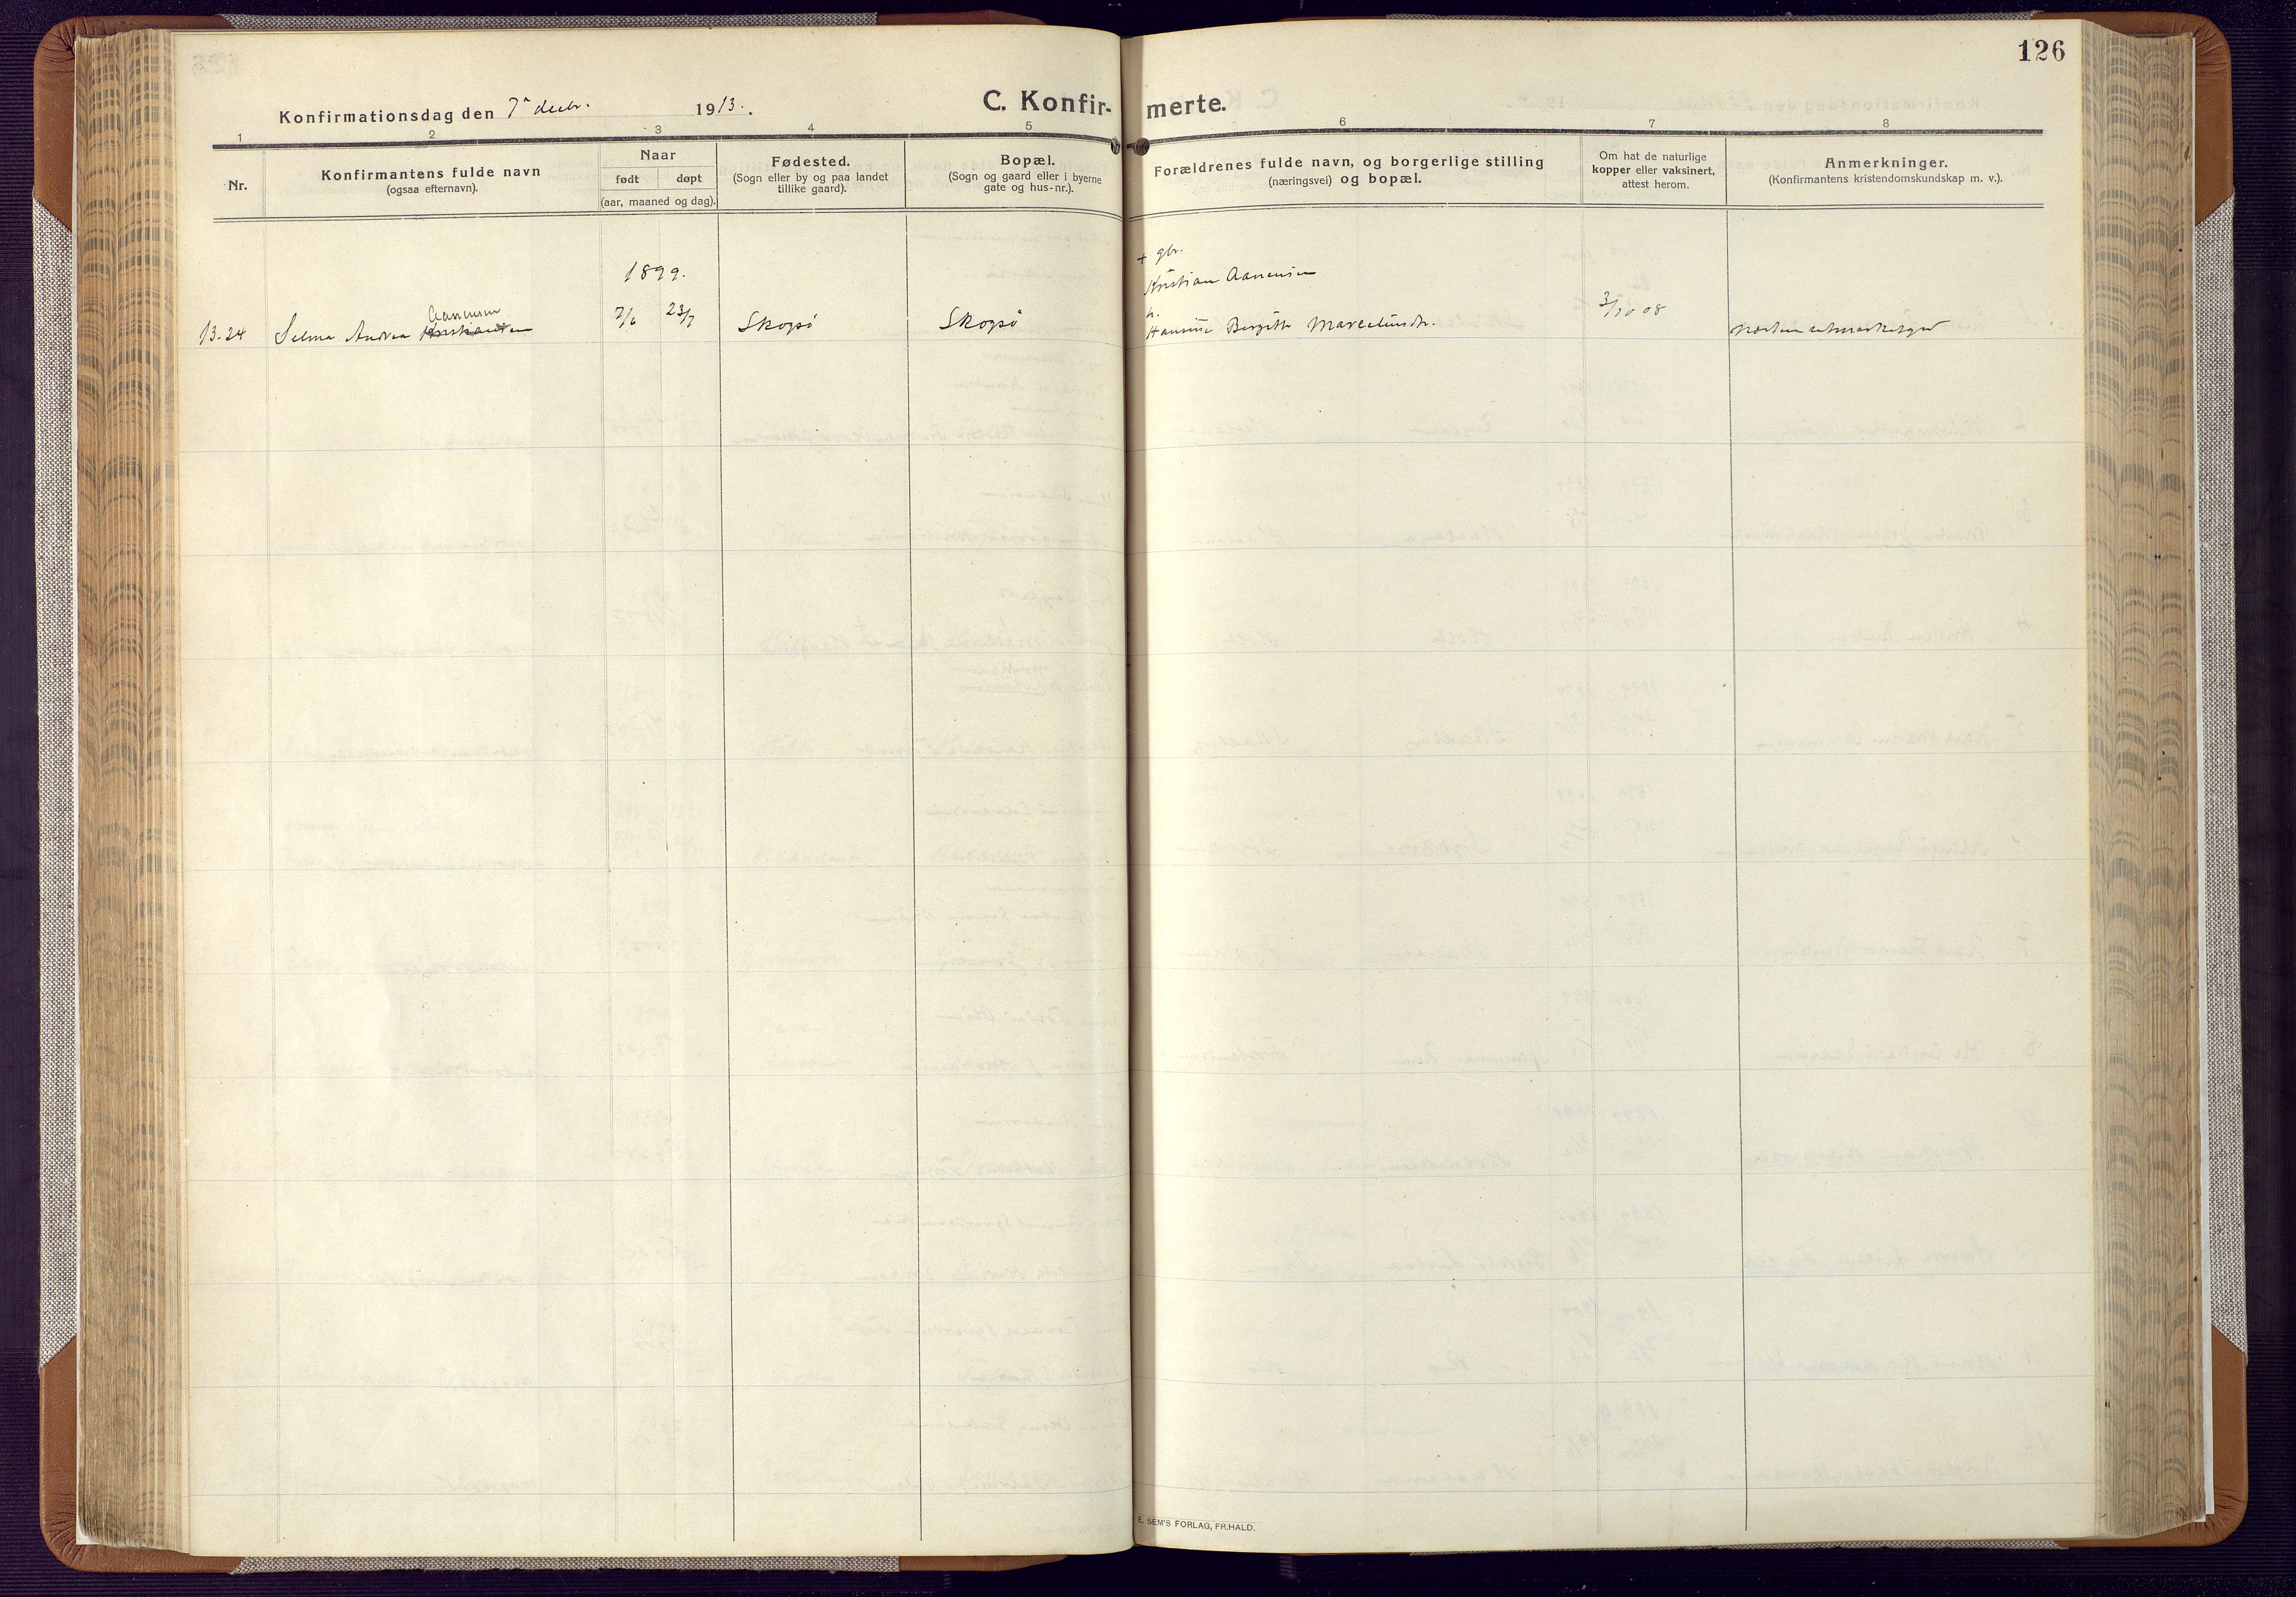 126
Konfirmationsdag den 7de decbr. 1913.
C. Konfir- merte.
1 2 3 4 5 6 7 8
Nr.
Konfirmantens fulde navn
(ogsaa efternavn).
Naar
født døpt
(aar, maaned og dag).
Fødested.
(Sogn eller by og paa landet
tillike gaard).
Bopæl.
(Sogn og gaard eller i byerne
gate og hus-nr.).
Forældrenes fulde navn, og borgerlige stilling
(næringsvei) og bopæl.
Om hat de naturlige
kopper eller vaksinert,
attest herom.
Anmerkninger.
(Konfirmantens kristendomskundskap m. v.).
+ gbr.
1899.
Kristian Aanensen
Aanensen
h.
13-24 Selma Andrea Kristiansen 7/6 23/7 Skogsö Skogsö Hansine Bergitte Marceliusdtr. 3/10 08 næsten utmerketgod
E. SEM'S FORLAG, FR.HALD.